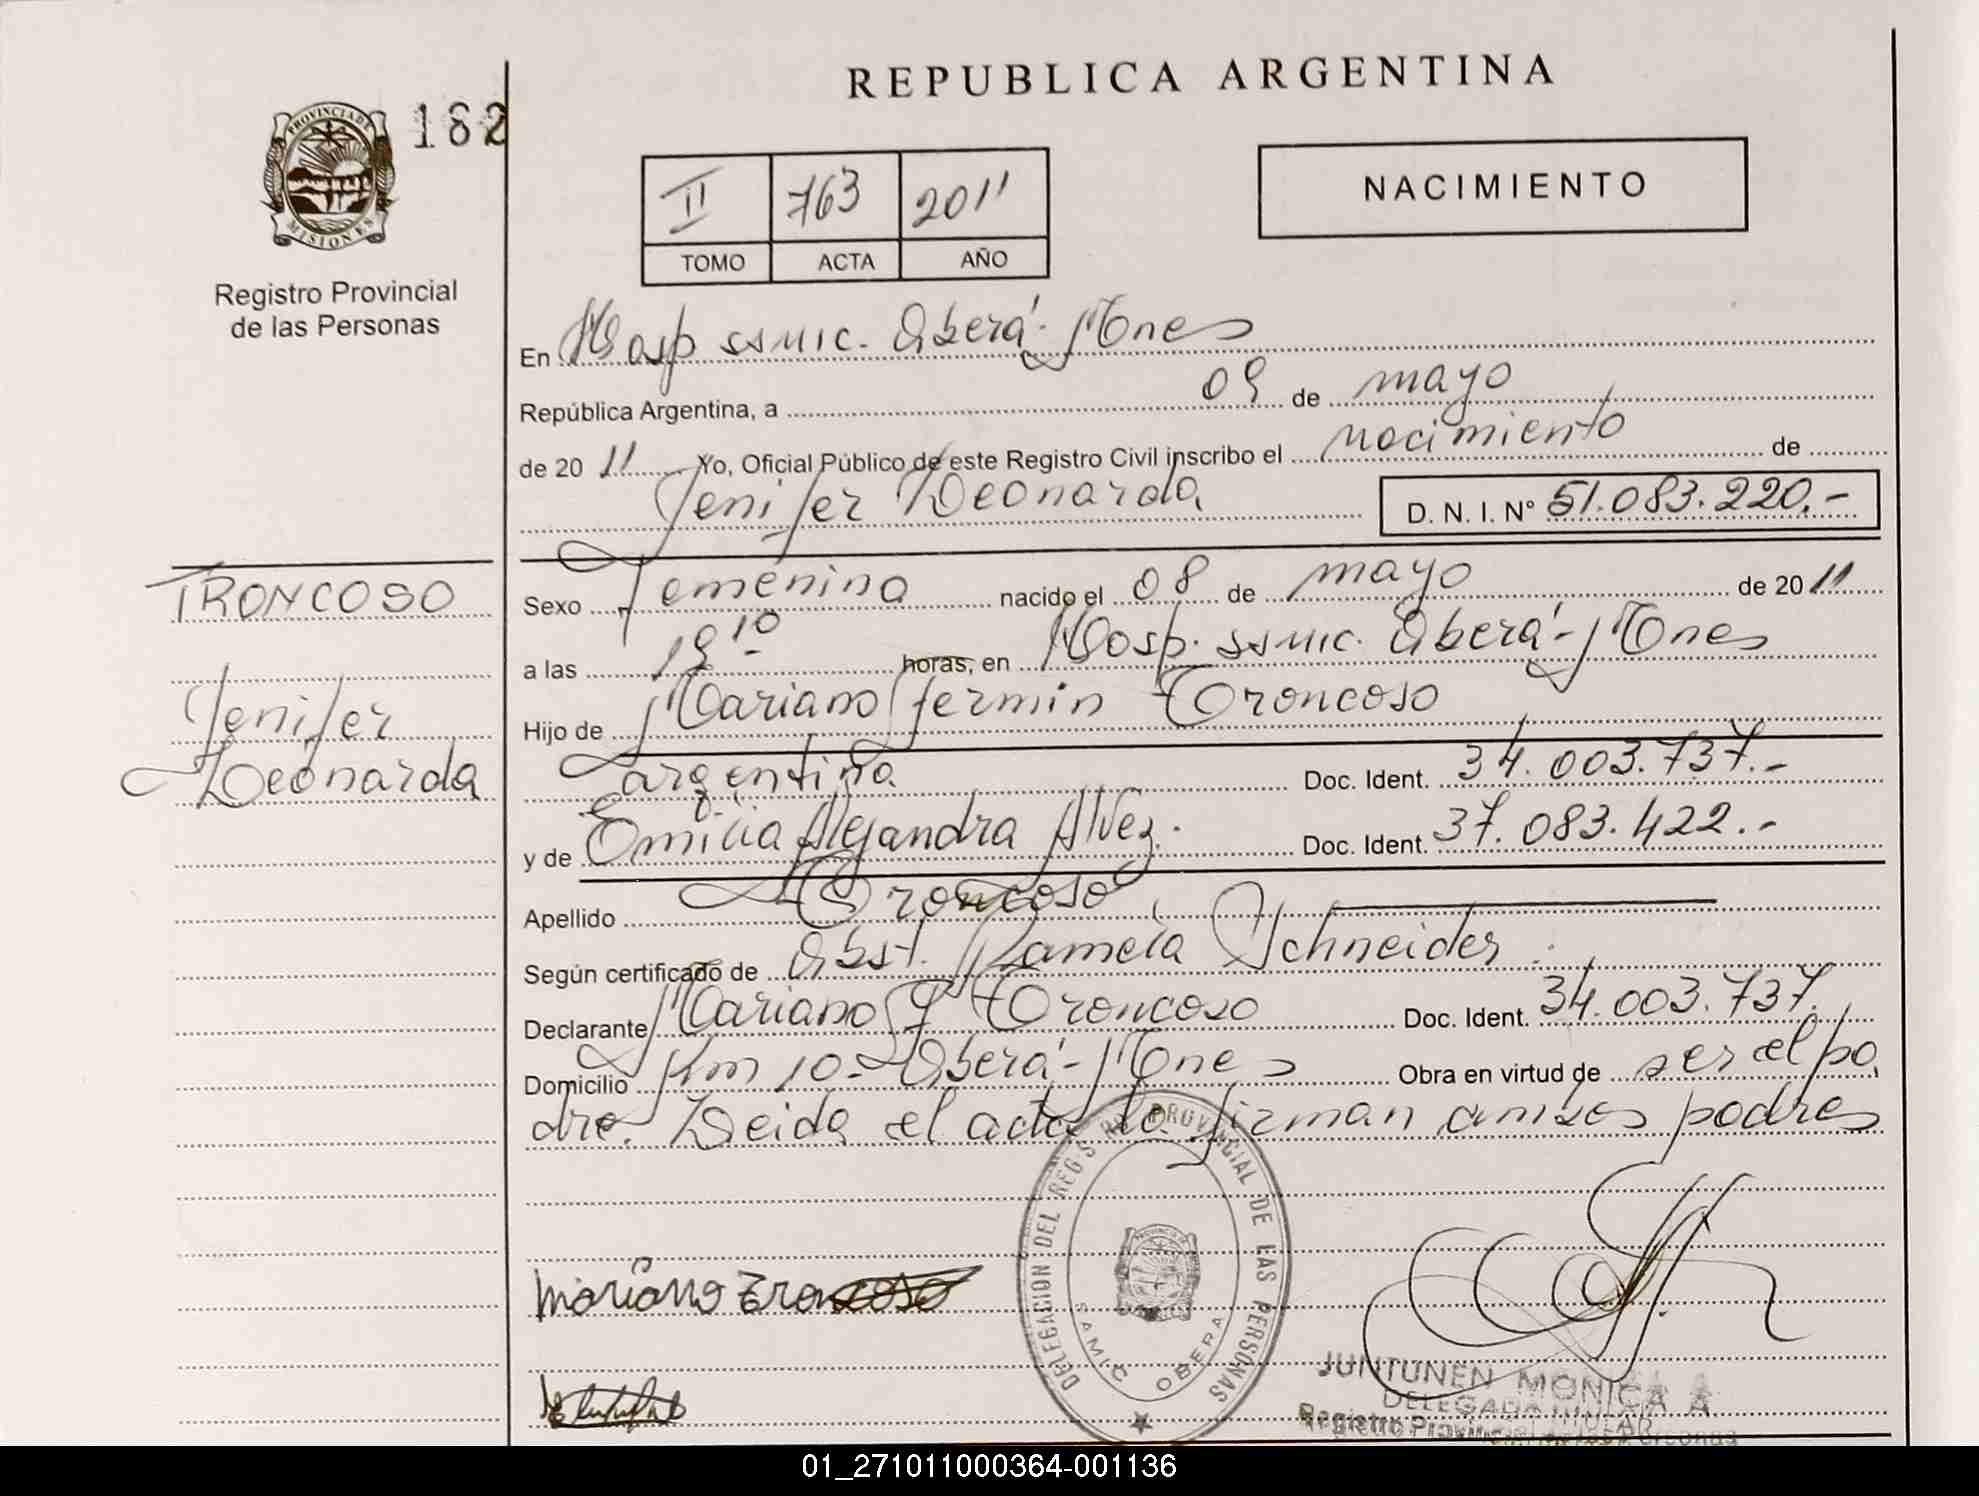 REPUBLICA ARGENTINA
PROVINCIA DE
MISIONES
182
Registro Provincial
de las Personas
II 763 2011
TOMO ACTA AÑO
NACIMIENTO
En Hosp SSMIC. Oberá - Mnes
República Argentina, a 09 de mayo
de 20 11 Yo, Oficial Público de este Registro Civil inscribo el nacimiento de
Jenifer Leonarda D. N. I. N° 51.083.220.-
TRONCOSO
Jenifer
Leonarda
Sexo Femenino nacido el 08 de mayo de 20 11
a las horas, en Hosp. SSMIC. Oberá - Mnes
Hijo de Mariano Fermin Troncoso
argentina Doc. Ident. 34.003.737.-
y de Emilia Alejandra Alvez. Doc. Ident. 37.083.422.-
Apellido Troncoso
Según certificado de Obst. Pamela Schneider.
Declarante Mariano F Troncoso Doc. Ident. 34.003.737.
Domicilio Km 10 - Oberá - Mnes Obra en virtud de ser el pa
dre. Leida el acta la firman ambos padres
Mariano Troncoso
DELEGACION DEL REGISTRO PROVINCIAL DE LAS PERSONAS
SAMIC OBERA
JUNTUNEN MONICA A
DELEGADA TITULAR
Registro Provincial de las Personas
01_271011000364-001136